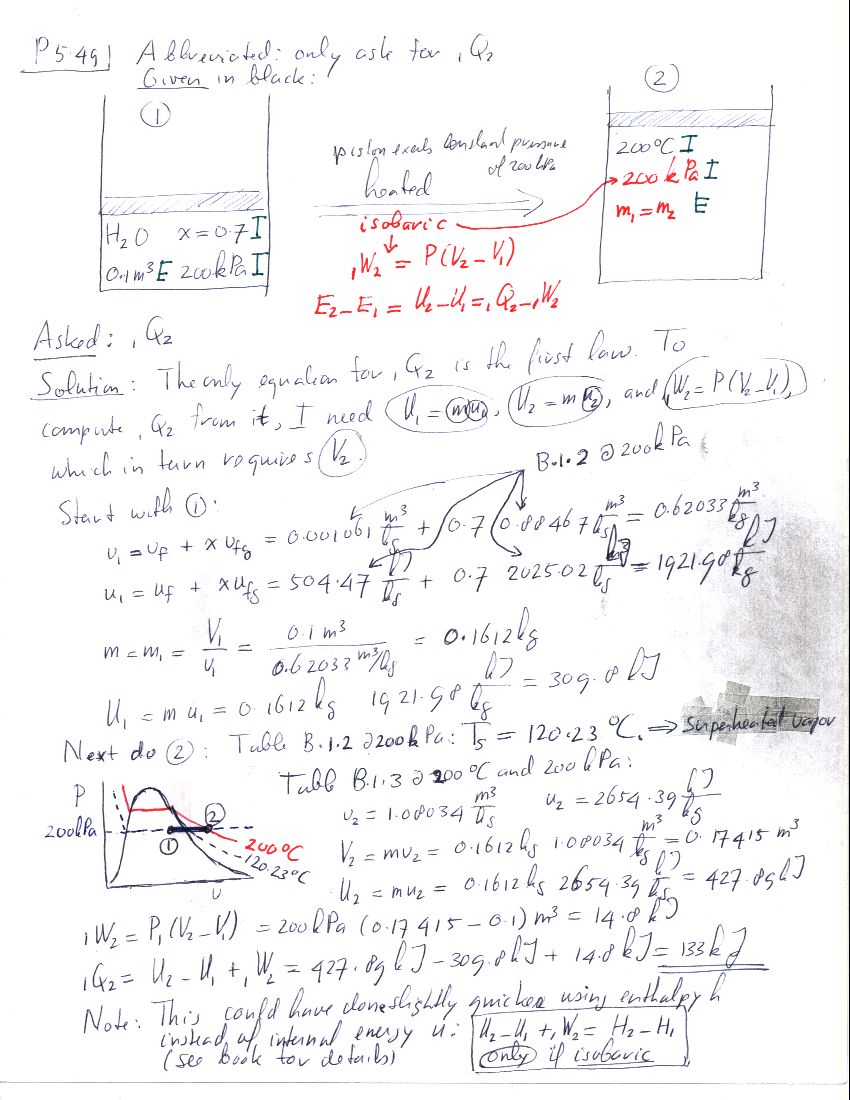 P 5.49 Abbreviated: only ask for ₁Q₂
Given in black:
① ②
piston exerts constant pressure
of 200 kPa
heated
isobaric
₁W₂ = P(V₂ – V₁)
E₂ – E₁ = U₂ – U₁ = ₁Q₂ – ₁W₂
H₂O x = 0.7 I
0.1 m³ E 200 kPa I
200°C I
200 kPa I
m₁ = m₂ E
Asked: ₁Q₂
Solution: The only equation for ₁Q₂ is the first law. To
compute ₁Q₂ from it, I need U₁ = m u₁, U₂ = m u₂, and ₁W₂ = P(V₂ – V₁),
which in turn requires V₂.
B.1.2 @ 200 kPa
Start with ①:
υ₁ = υf + x υfg = 0.001061 m³/kg + 0.7 0.88467 m³/kg = 0.62033 m³/kg
u₁ = uf + x ufg = 504.47 kJ/kg + 0.7 2025.02 kJ/kg = 1921.98 kJ/kg
m = m₁ = V₁/υ₁ = 0.1 m³ / 0.62033 m³/kg = 0.1612 kg
U₁ = m u₁ = 0.1612 kg 1921.98 kJ/kg = 309.8 kJ
Next do ②: Table B.1.2 @ 200 kPa: Ts = 120.23 °C. ⇒ Superheated vapor
Table B.1.3 @ 200°C and 200 kPa:
υ₂ = 1.08034 m³/kg u₂ = 2654.39 kJ/kg
V₂ = mυ₂ = 0.1612 kg 1.08034 m³/kg = 0.17415 m³
U₂ = mu₂ = 0.1612 kg 2654.39 kJ/kg = 427.89 kJ
P
200 kPa
① ②
200°C
120.23°C
υ
₁W₂ = P₁(V₂ – V₁) = 200 kPa (0.17415 – 0.1) m³ = 14.8 kJ
₁Q₂ = U₂ – U₁ + ₁W₂ = 427.89 kJ – 309.8 kJ + 14.8 kJ = 133 kJ
Note: This could have done slightly quicker using enthalpy h
instead of internal energy u: U₂ – U₁ + ₁W₂ = H₂ – H₁
(see book for details) only if isobaric